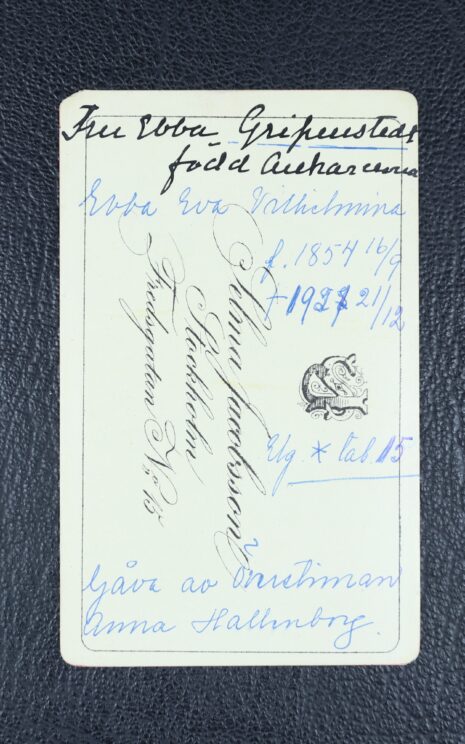 Fru Ebba Gripenstedt
född Anckarsvärd
Ebba Eva Vilhelmina
f. 1854 16/9
† 1927 21/12
Selma Jacobsson
Stockholm
Fredsgatan No 15
Elg * tab 15
Gåva av Överstinnan
Anna Hallenborg.